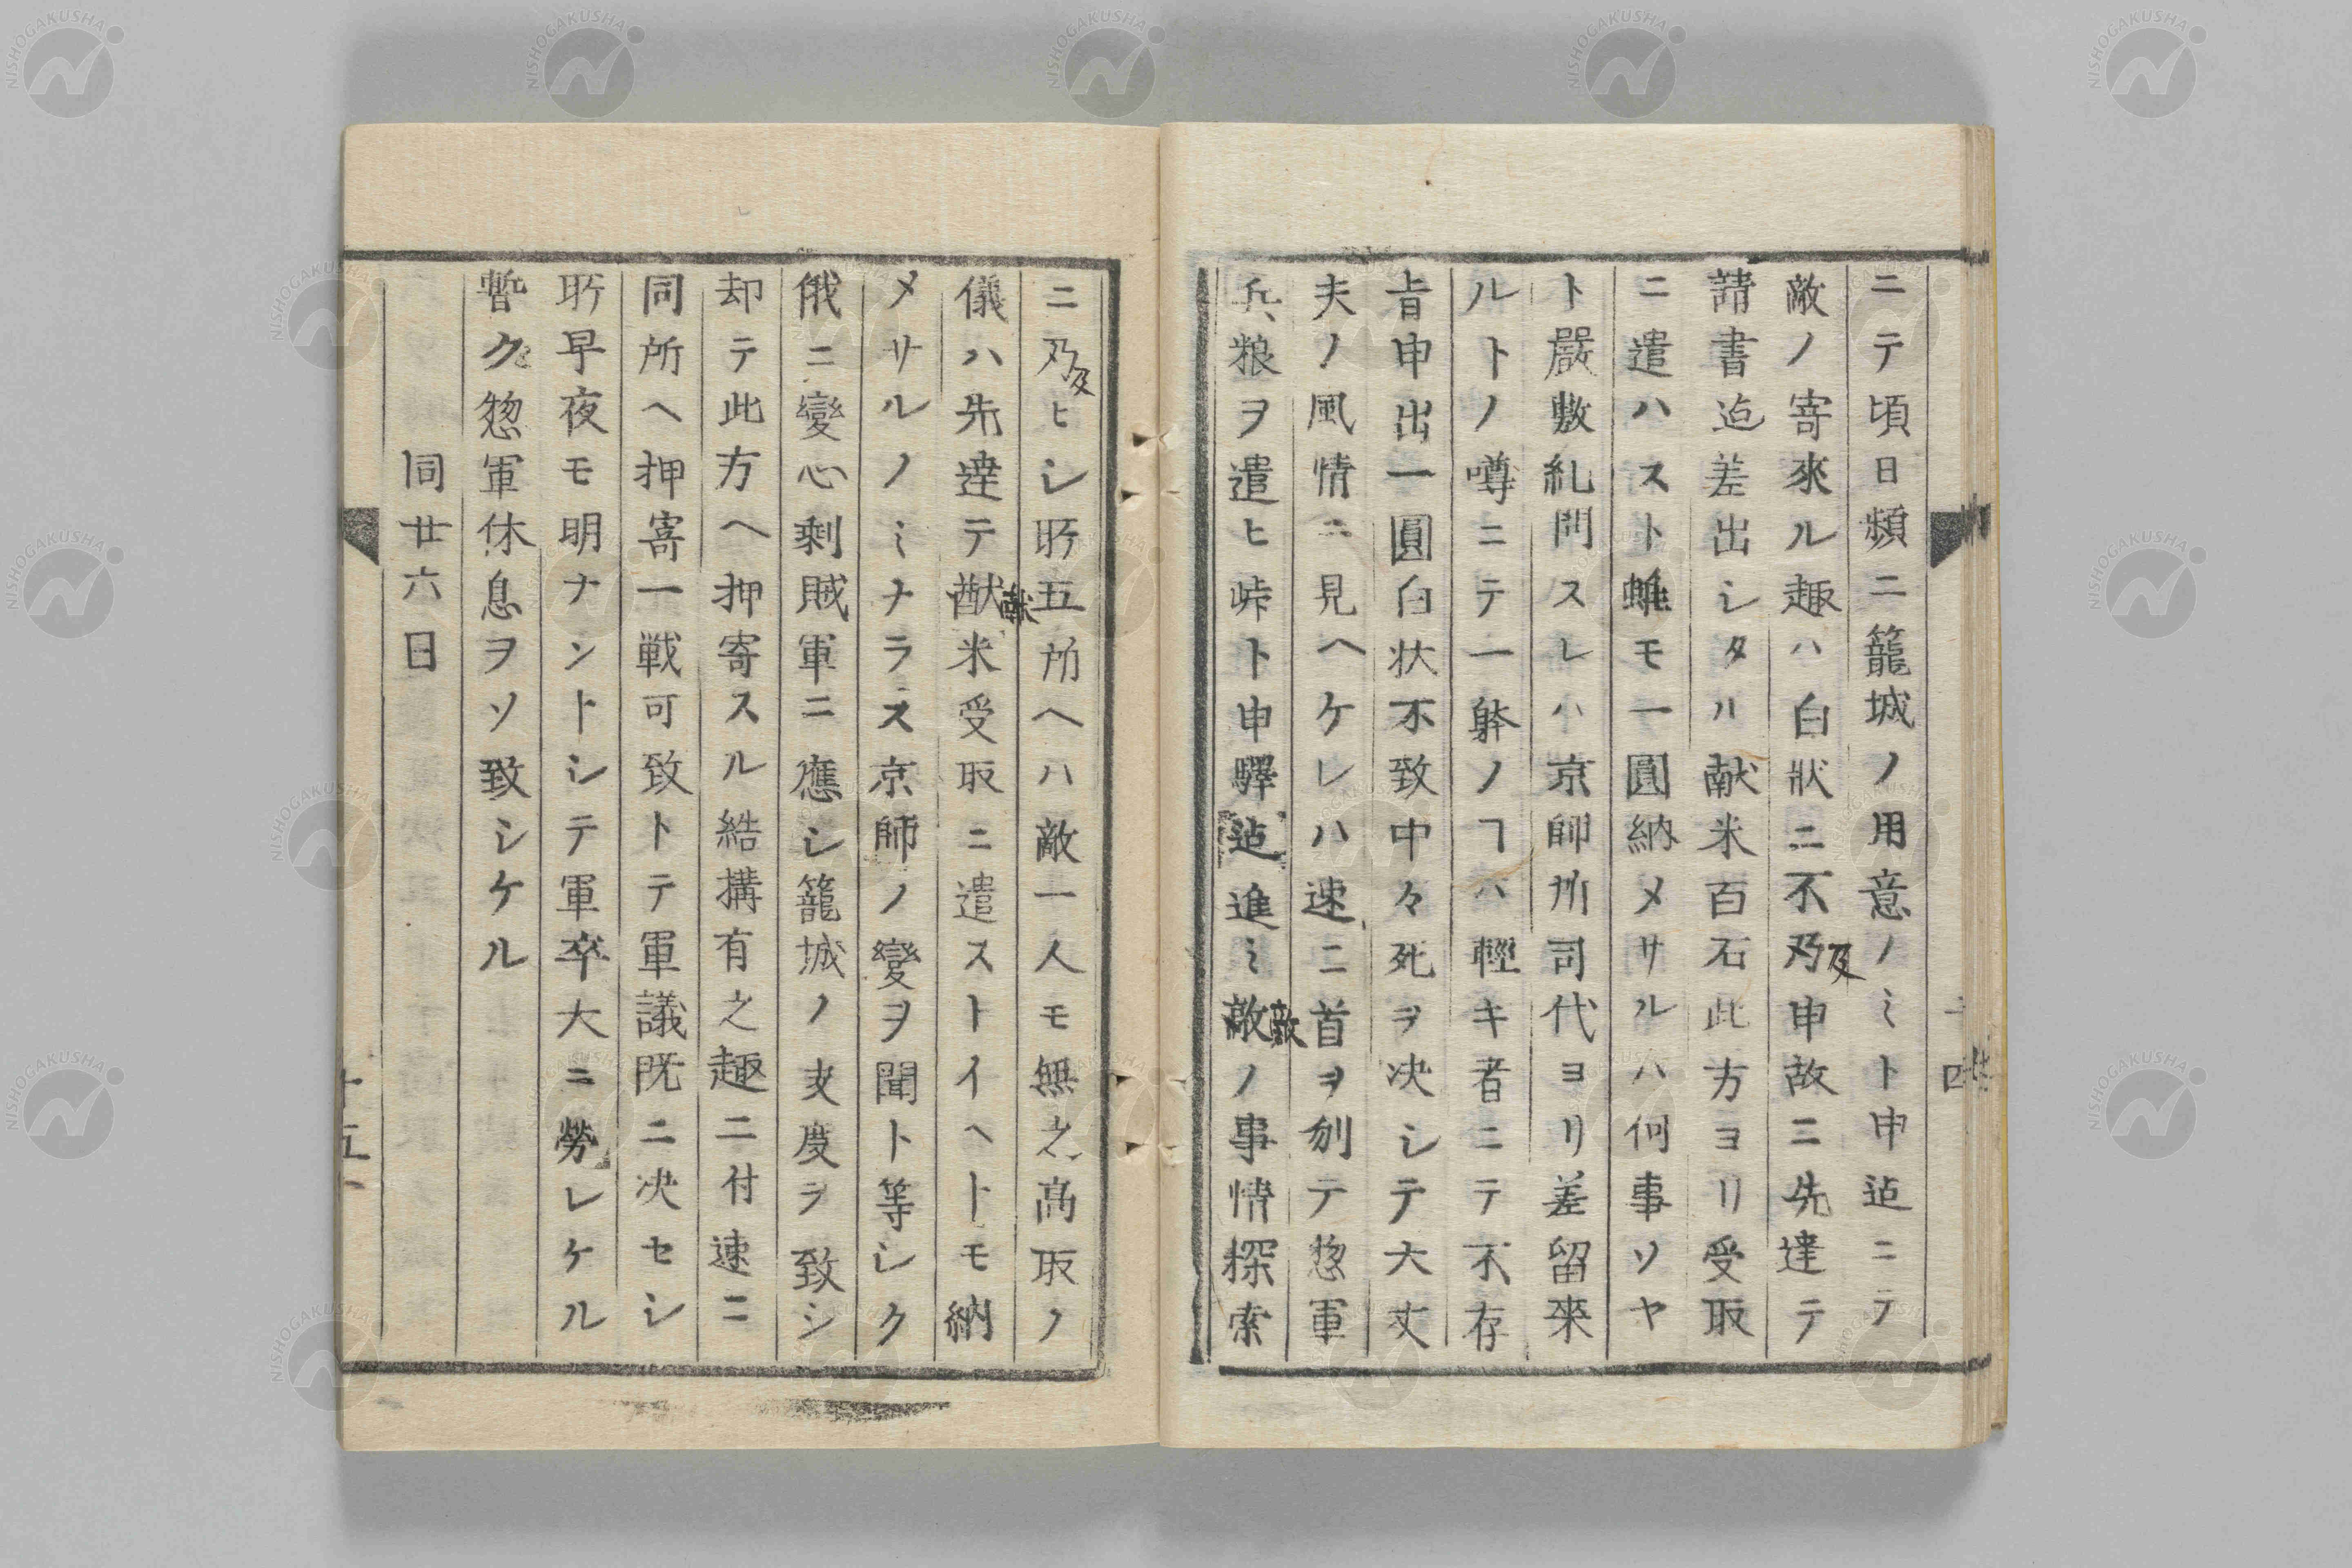 ニテ頃日頻ニ籠城ノ用意ノミト申迠ニテ
敵ノ寄來ル趣ハ白狀ニ不及申故ニ先達テ
請書迠差出シタル献米百石此方ヨリ受取
ニ遣ハスト雖モ一圓納メサルハ何事ソヤ
ト嚴敷糺問スレハ京師所司代ヨリ差留來
ルトノ噂ニテ一躰ノヿハ輕キ者ニテ不存
旨申出一圓白状不致中々死ヲ决シテ大丈
夫ノ風情ニ見ヘケレハ速ニ首ヲ刎テ惣軍
兵粮ヲ遣ヒ峠ト申驛迠進ミ敵ノ事情探索
十四
ニ及ヒシ所五所ヘハ敵一人モ無之高取ノ
儀ハ先達テ献米受取ニ遣ストイヘトモ納
メサルノミナラス京師ノ變ヲ聞ト等シク
俄ニ變心剰賊軍ニ應シ籠城ノ支度ヲ致シ
却テ此方ヘ押寄スル結構有之趣ニ付速ニ
同所ヘ押寄一戦可致トテ軍議既ニ决セシ
所早夜モ明ナントシテ軍卒大ニ勞レケル
暫ク惣軍休息ヲソ致シケル
同廿六日
十五
NISHOGAKUSHA